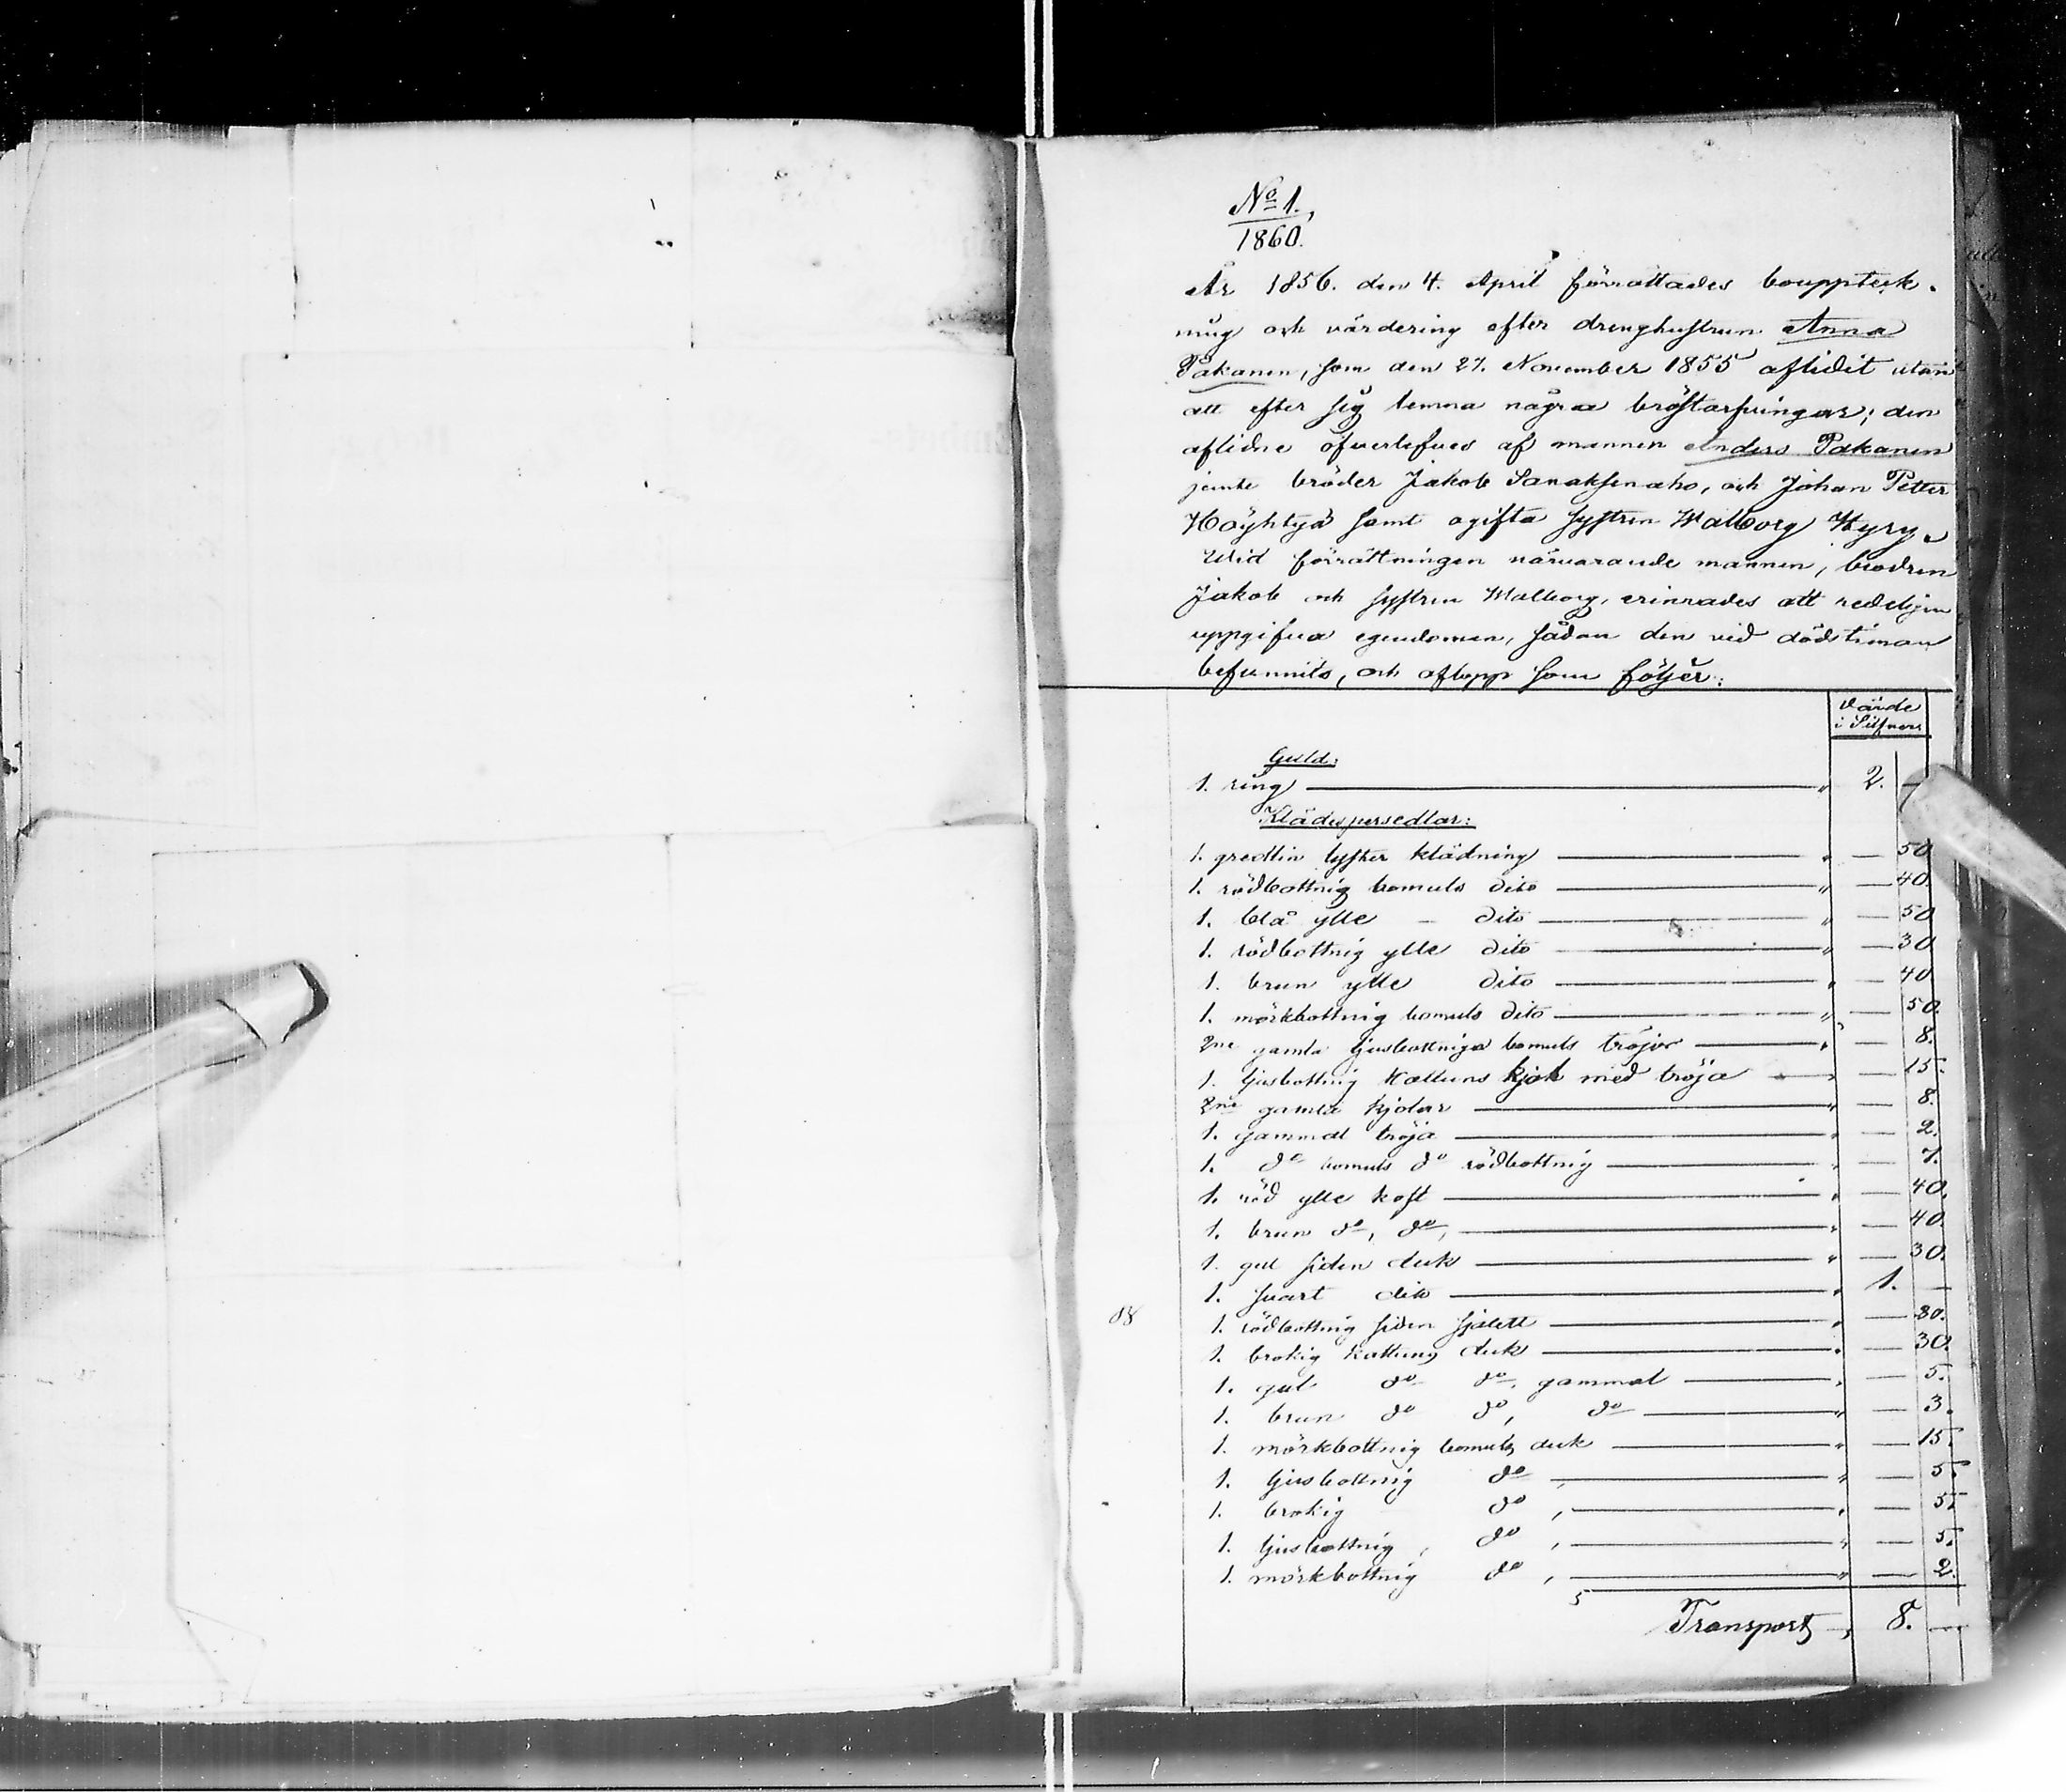 No 1.
1860.
År 1856. den 4. April förrättades bouppteck-
ning och värdering efter drenghustrun Anna
Pakanen, som den 27. November 1855 aflidit utan
att efter sig lemna några bröstarfvingar; den
aflidne öfverlefves af mannen Anders Pakanen
jemte bröder Jakob Sanaksenaho, och Johan Petter
Höyhtyä samt ogifta systren Walborg Kyry.
Wid förrättningen närvarande mannen, brodren
Jakob och systren Walborg, erinrades att redeligen
uppgifva egendomen, sådan den vid dödstiman
befunnits, och aflopp som följer:
Värde
i Silfver
Guld:
1. ring " 2. —
Klädespersedlar:
1. gredlin lyster klädning " — 50
1. rödbottnig bomuls dito " — 40.
1. blå ylle — dito " — 50
1. rödbottnig ylle dito " — 30
1. brun ylle dito " — 40
1. mörkbottnig bomuls dito " — 50.
2ne gamla ljusbottniga bomuls tröjor " — 8.
1. ljusbottnig Kattuns kjol med tröja " — 15.
2ne gamla kjolar " — 8.
1. gammal tröja " — 2.
1. do bomuls do rödbottnig " — 7.
1. röd ylle koft " — 40.
1. brun do, do, " — 40.
1. gul siden duk " — 30.
1. svart dito " 1. —
1. rödbottnig siden sjalett " — 80.
1. brokig kattuns duk " — 30.
1. gul do do, gammal " — 5.
1. brun do do, do " — 3.
1. mörkbottnig bomuls duk " — 15.
1. ljusbottnig do, " — 5.
1. brokig do, " — 5.
1. ljusbottnig, do, " — 5.
1. mörkbottnig do, " — 2.
Transport, 8. —